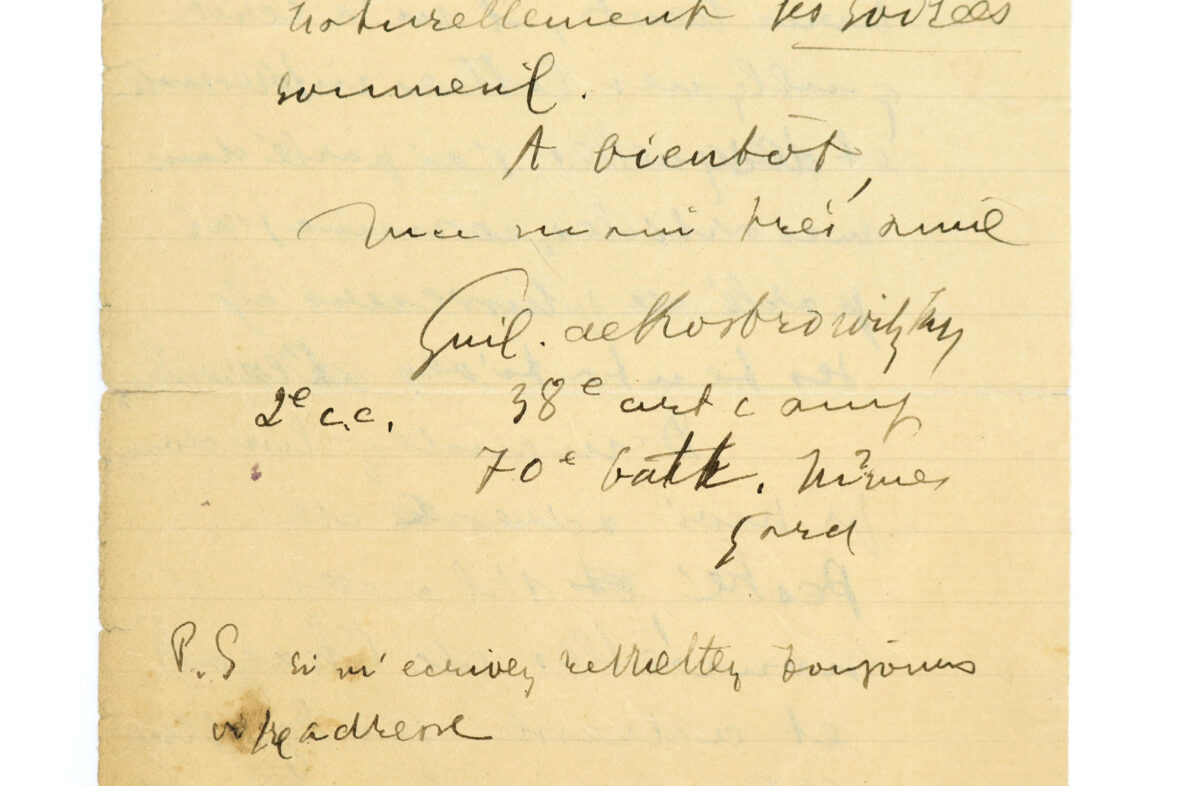 naturellement les soirées
sommeil.
A bientôt,
Ma main très amie
Guil. de Kostrowitzky
2e c.c. 38e art camp
70e batt. Nîmes
Gard
P.S si m'ecrivez remettez toujours
votre adresse